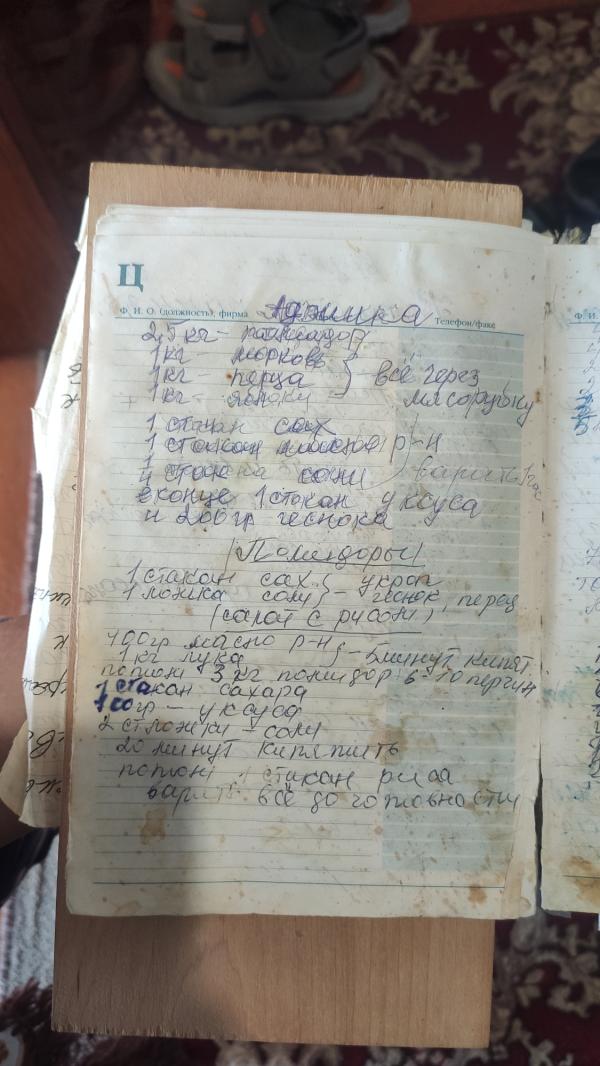 Ц
Ф. И. О. (должность), фирма Аджика Телефон/факс
2,5 кг - помидор
1 кг - морковь
1 кг - перца } всё через
1 кг - яблоки - мясорубку
1 стакан сах
1 стакан масло р-н
стакана соли варить 1 час
в конце 1 стакан уксуса
и 200 гр чеснока
Помидоры
1 стакан сах } укроп
1 ложка соли - чеснок, перец
(салат с рисом)
400 гр масло р-н
1 кг лука - 5 минут кипят
потом 3 кг помидор 6-10 перчин
1 стакан сахара
гр - уксуса
2 ст ложки - соли
20 минут кипятить
потом 1 стакан риса
варить всё до готовности
Ф. И.